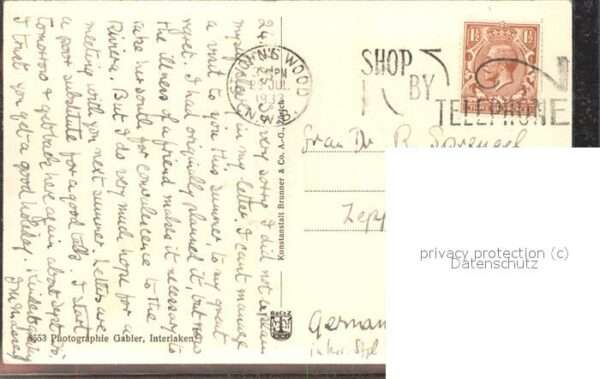 24.
very sorry I did not explain
myself better in my letter. I can't manage
a visit to you this summer, to my great
regret. I had originally planned it, but now
the illness of a friend makes it necessary to
take her south for convalescence to the
Riviera. But I do very much hope for a
meeting with you next summer. Letters are
a poor substitute for a good talk. I start
tomorrow &
be here again about Sept. 10.
I trust you get a good holiday.
8653 Photographie Gabler, Interlaken
Kunstanstalt Brunner & Co. A.-G., Zürich
JOHN'S WOOD
PM
JUL
N.W.8
SHOP
BY
TELEPHONE
Frau Dr. R. Sprengel
Zepp
German
privacy protection (c)
Datenschutz